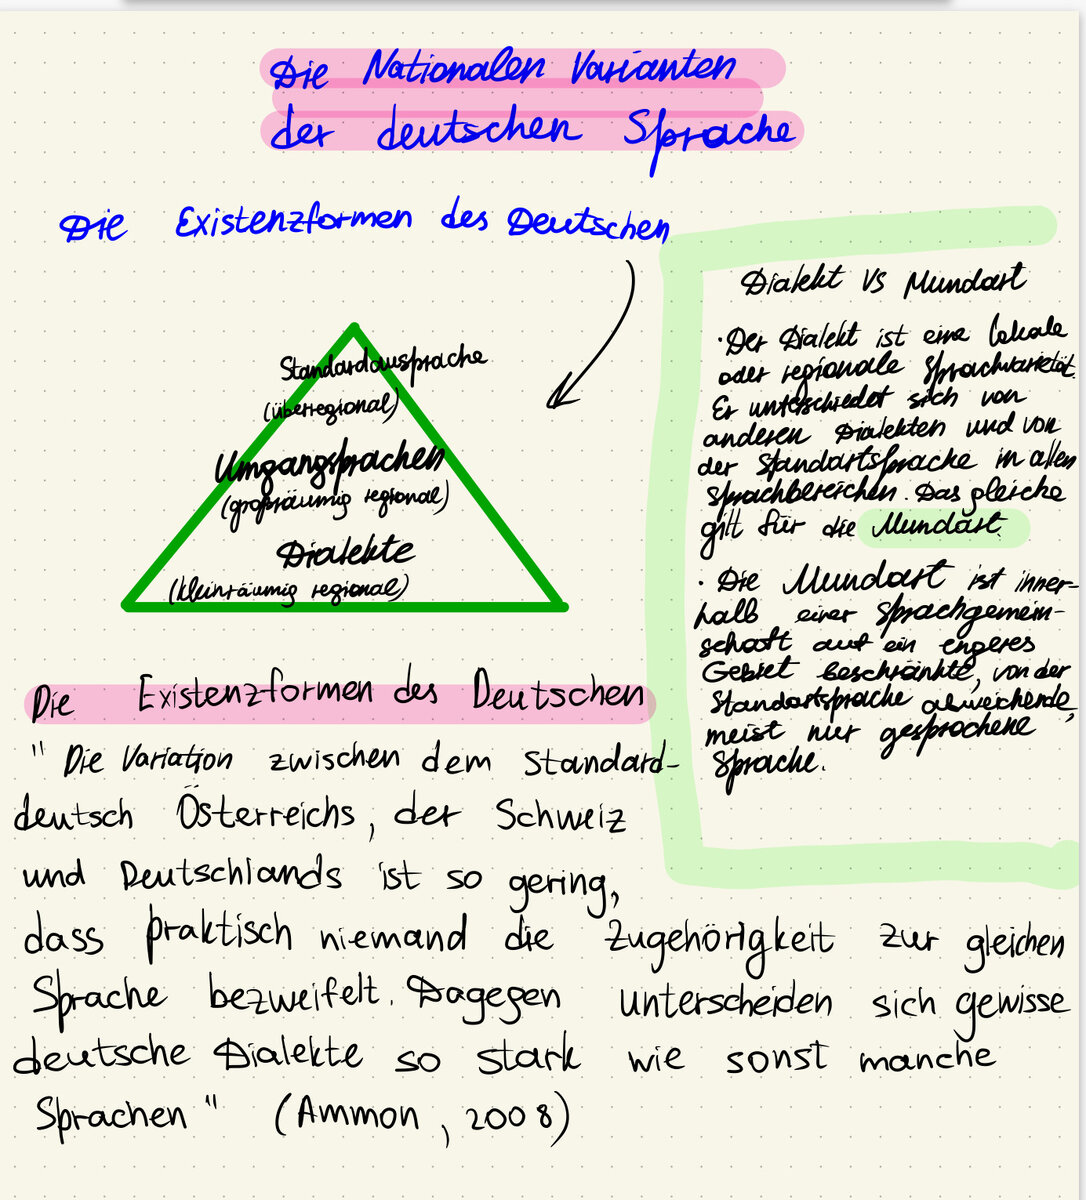 Die Nationalen Varianten
der deutschen Sprache
Die Existenzformen des Deutschen
Standardaussprache
(überregional)
Umgangsprachen
(großräumig regional)
Dialekte
(kleinräumig regional)
Dialekt VS Mundart
· Der Dialekt ist eine lokale
oder regionale Sprachvarietät.
Er unterschiedet sich von
anderen Dialekten und von
der Standartsprache in allen
Sprachbereichen. Das gleiche
gilt für die Mundart.
· Die Mundart ist inner-
halb einer Sprachgemein-
schaft auf ein engeres
Gebiet beschränkte, von der
Standartsprache abweichende,
meist nur gesprochene
Sprache.
Die Existenzformen des Deutschen
" Die Variation zwischen dem Standard-
deutsch Österreichs, der Schweiz
und Deutschlands ist so gering,
dass praktisch niemand die Zugehörigkeit zur gleichen
Sprache bezweifelt. Dagegen unterscheiden sich gewisse
deutsche Dialekte so stark wie sonst manche
Sprachen" (Ammon, 2008)